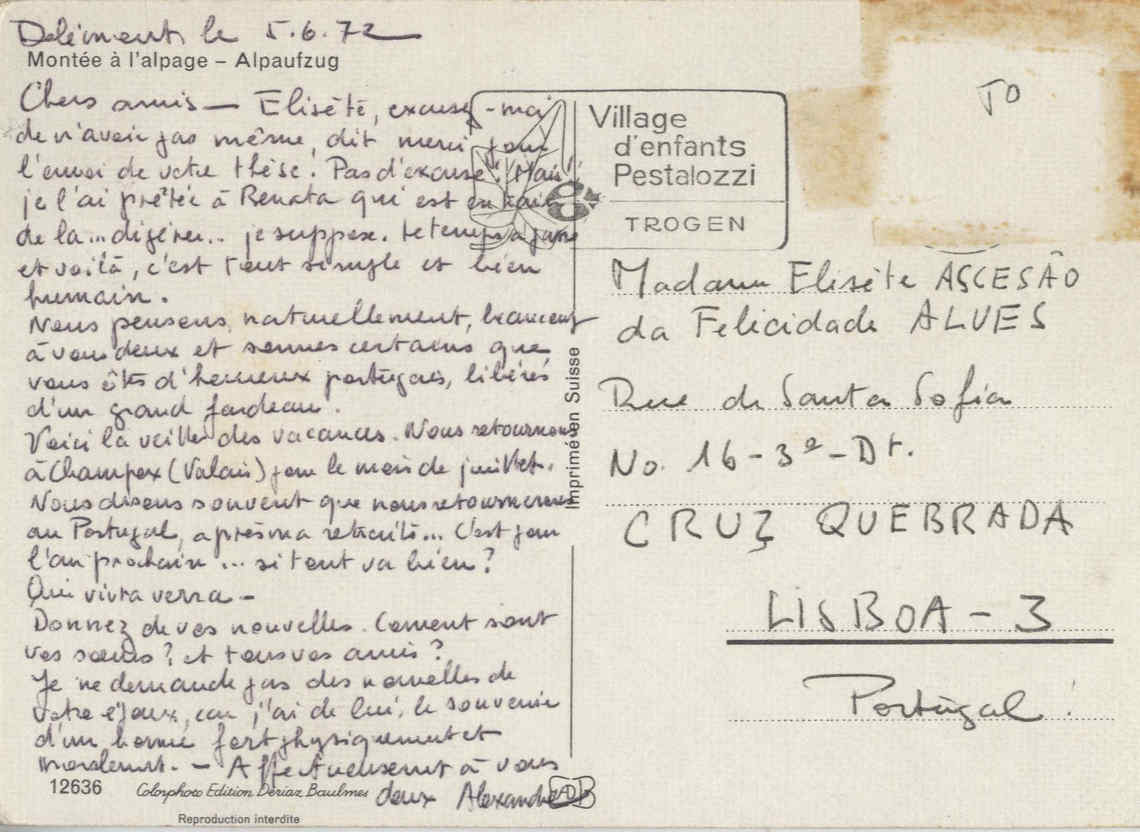 Delémont, le 5.6.72
Montée à l'alpage – Alpaufzug
Chers amis — Elisète, excusez-moi
de n'avoir pas même dit merci pour
l'envoi de votre thèse. Pas d'excuse! Mais
je l'ai prêtée à Renata qui est en train
de la... digérer.. je suppose. Le temps a passé
et voilà, c'est tout simple et bien
humain.
Nous pensons, naturellement, beaucoup
à vous deux et sommes certains que
vous êtes d'heureux portugais, libérés
d'un grand fardeau.
Voici la veille des vacances. Nous retournons
à Champex (Valais) pour le mois de juillet.
Nous disons souvent que nous retournerons
au Portugal, après ma retraite... C'est pour
l'an prochain... si tout va bien?
Qui vivra verra –
Donnez de vos nouvelles. Coment sont
vos sœurs? et tous vos amis?
Je ne demande pas des nouvelles de
votre époux, car j'ai de lui, le souvenir
d'un homme fort physiquement et
moralement. – Affectueusement à vous
deux Alexandre
12636
Colorphoto Edition Dériaz Baulmes
Reproduction interdite
Imprimé en Suisse
Village
d'enfants
Pestalozzi
TROGEN
TO
Madame Elisète ASCESÃO
da Felicidade ALVES
Rue de Santa Sofia
No. 16-3º-Dt.
CRUZ QUEBRADA
LISBOA-3
Portugal!